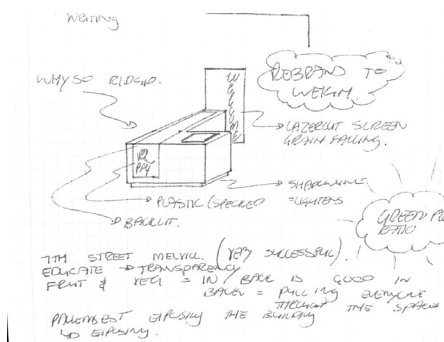 WRITING
WHY SO RIDGID.
REBRAND TO
WEIGH
LAZERCUT SCREEN
GRAIN FALLING.
PAY
PLASTIC (SPECKED
BACKLIT.
= LIGHTENS
GREEN
RATIO
7TH STREET MELVILL. (VERY SUCCESSFUL).
EDUCATE → TRANSPARENCY
FRUIT & VEG = IN / BACK IS GOOD IN
BACK = PULLING EVERYONE
THROUGH THE SPACE
EXPOSING THE BUILDING
EXPOSING.